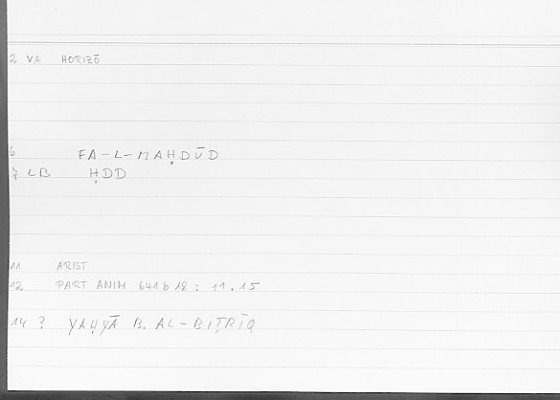 2 VA HORIZŌ
6 FA-L-MAḤDŪD
7 LB ḤDD
11 ARIST
12 PART ANIM 641b18: 11.15
14 ? YAḤYĀ B. AL-BIṬRĪQ